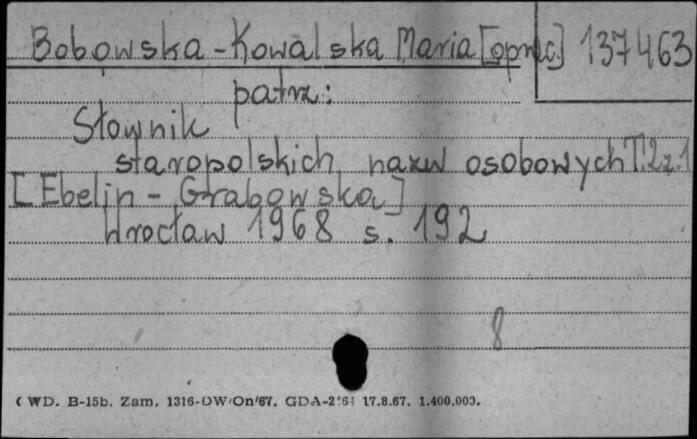 Bobowska-Kowalska Maria [oprac.] 137463
patrz:
Słownik
staropolskich nazw osobowych T.2 z.1
[Ebelin - Grabowska]
Wrocław 1968 s. 192
8
( WD. B-15b. Zam. 1316-DW/On/67. GDA-2 64 17.8.67. 1.400.000.